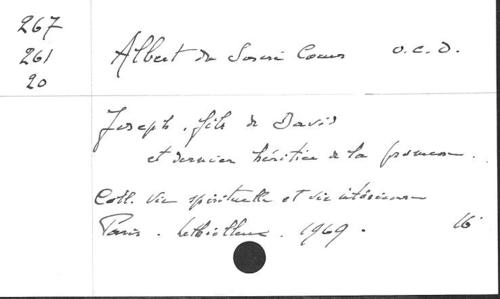 267
261
20
Albert du Sacré Coeur o.c.d.
Joseph, fils de David
et dernier héritier de la promesse.
Coll. Vie spirituelle et vie intérieure
Paris. Lethielleux. 1969. 16°